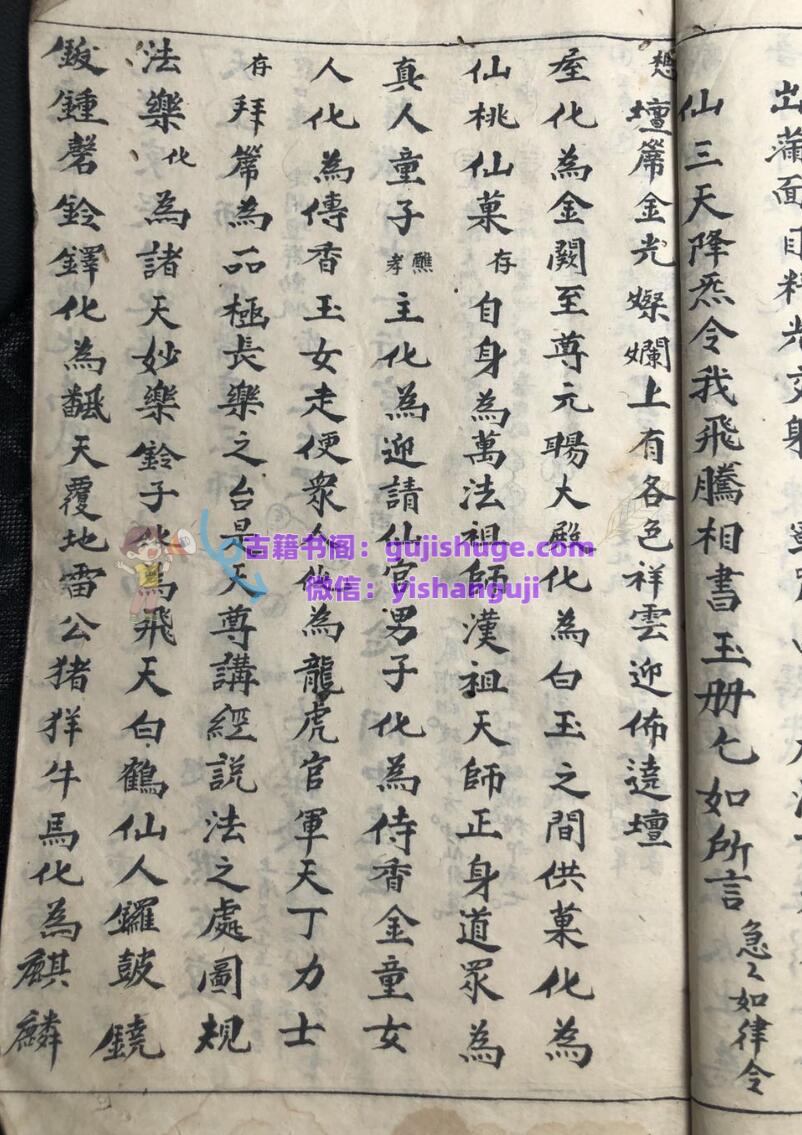 出蒲面目精光交射
仙三天降炁令我飛騰相書玉册乞如所言急〻如律令
想壇簾金光燦爛上有各色祥雲迎佈遶壇
座化為金闕至尊元暘大殿化為白玉之間供菓化為
仙桃仙菓存自身為萬法祖師漢祖天師正身道眾為
真人童子醮孝主化為迎請仙官男子化為侍香金童女
人化為傳香玉女走使眾人化為龍虎官軍天丁力士
存拜簾為品極長樂之台是天尊講經説法之處圖規
法樂化為諸天妙樂鈴子化為飛天白鶴仙人鑼鼓鐃
鈸鍾磬鈴鐸化為翻天覆地雷公猪羊牛馬化為麒麟
古籍书阁：gujishuge.com
微信：yishanguji